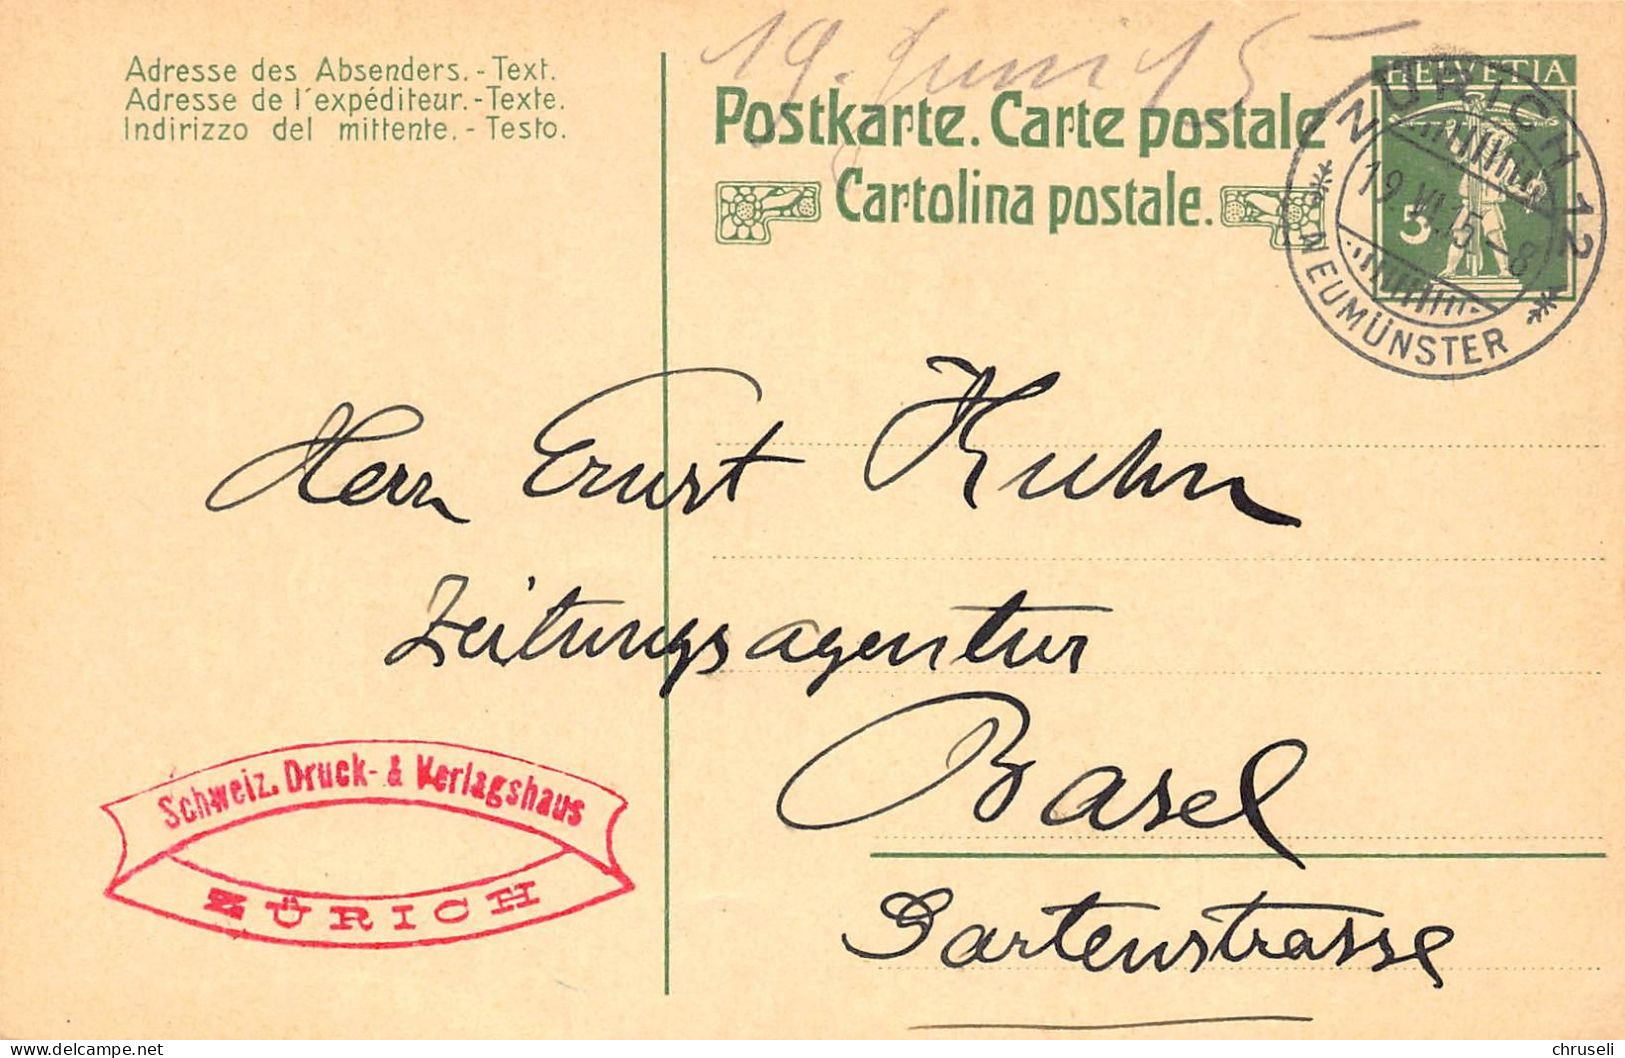 19. Juni 15
Adresse des Absenders.-Text.
Adresse de l'expéditeur.-Texte.
Indirizzo del mittente.-Testo.
Postkarte. Carte postale
Cartolina postale.
HELVETIA
5
ZÜRICH 12
19.VI.15.-8
NEUMÜNSTER
Herrn Ernst Kuhn
Zeitungsagentur
Basel
Gartenstrasse
Schweiz. Druck- & Verlagshaus
ZÜRICH
© chruseli